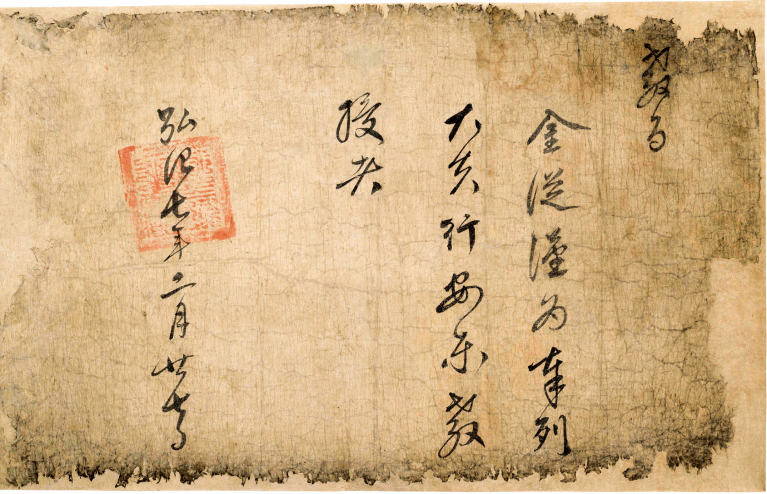 敎旨
金從漢爲奉列
大夫行安東敎
授者
弘治七年二月廿七日